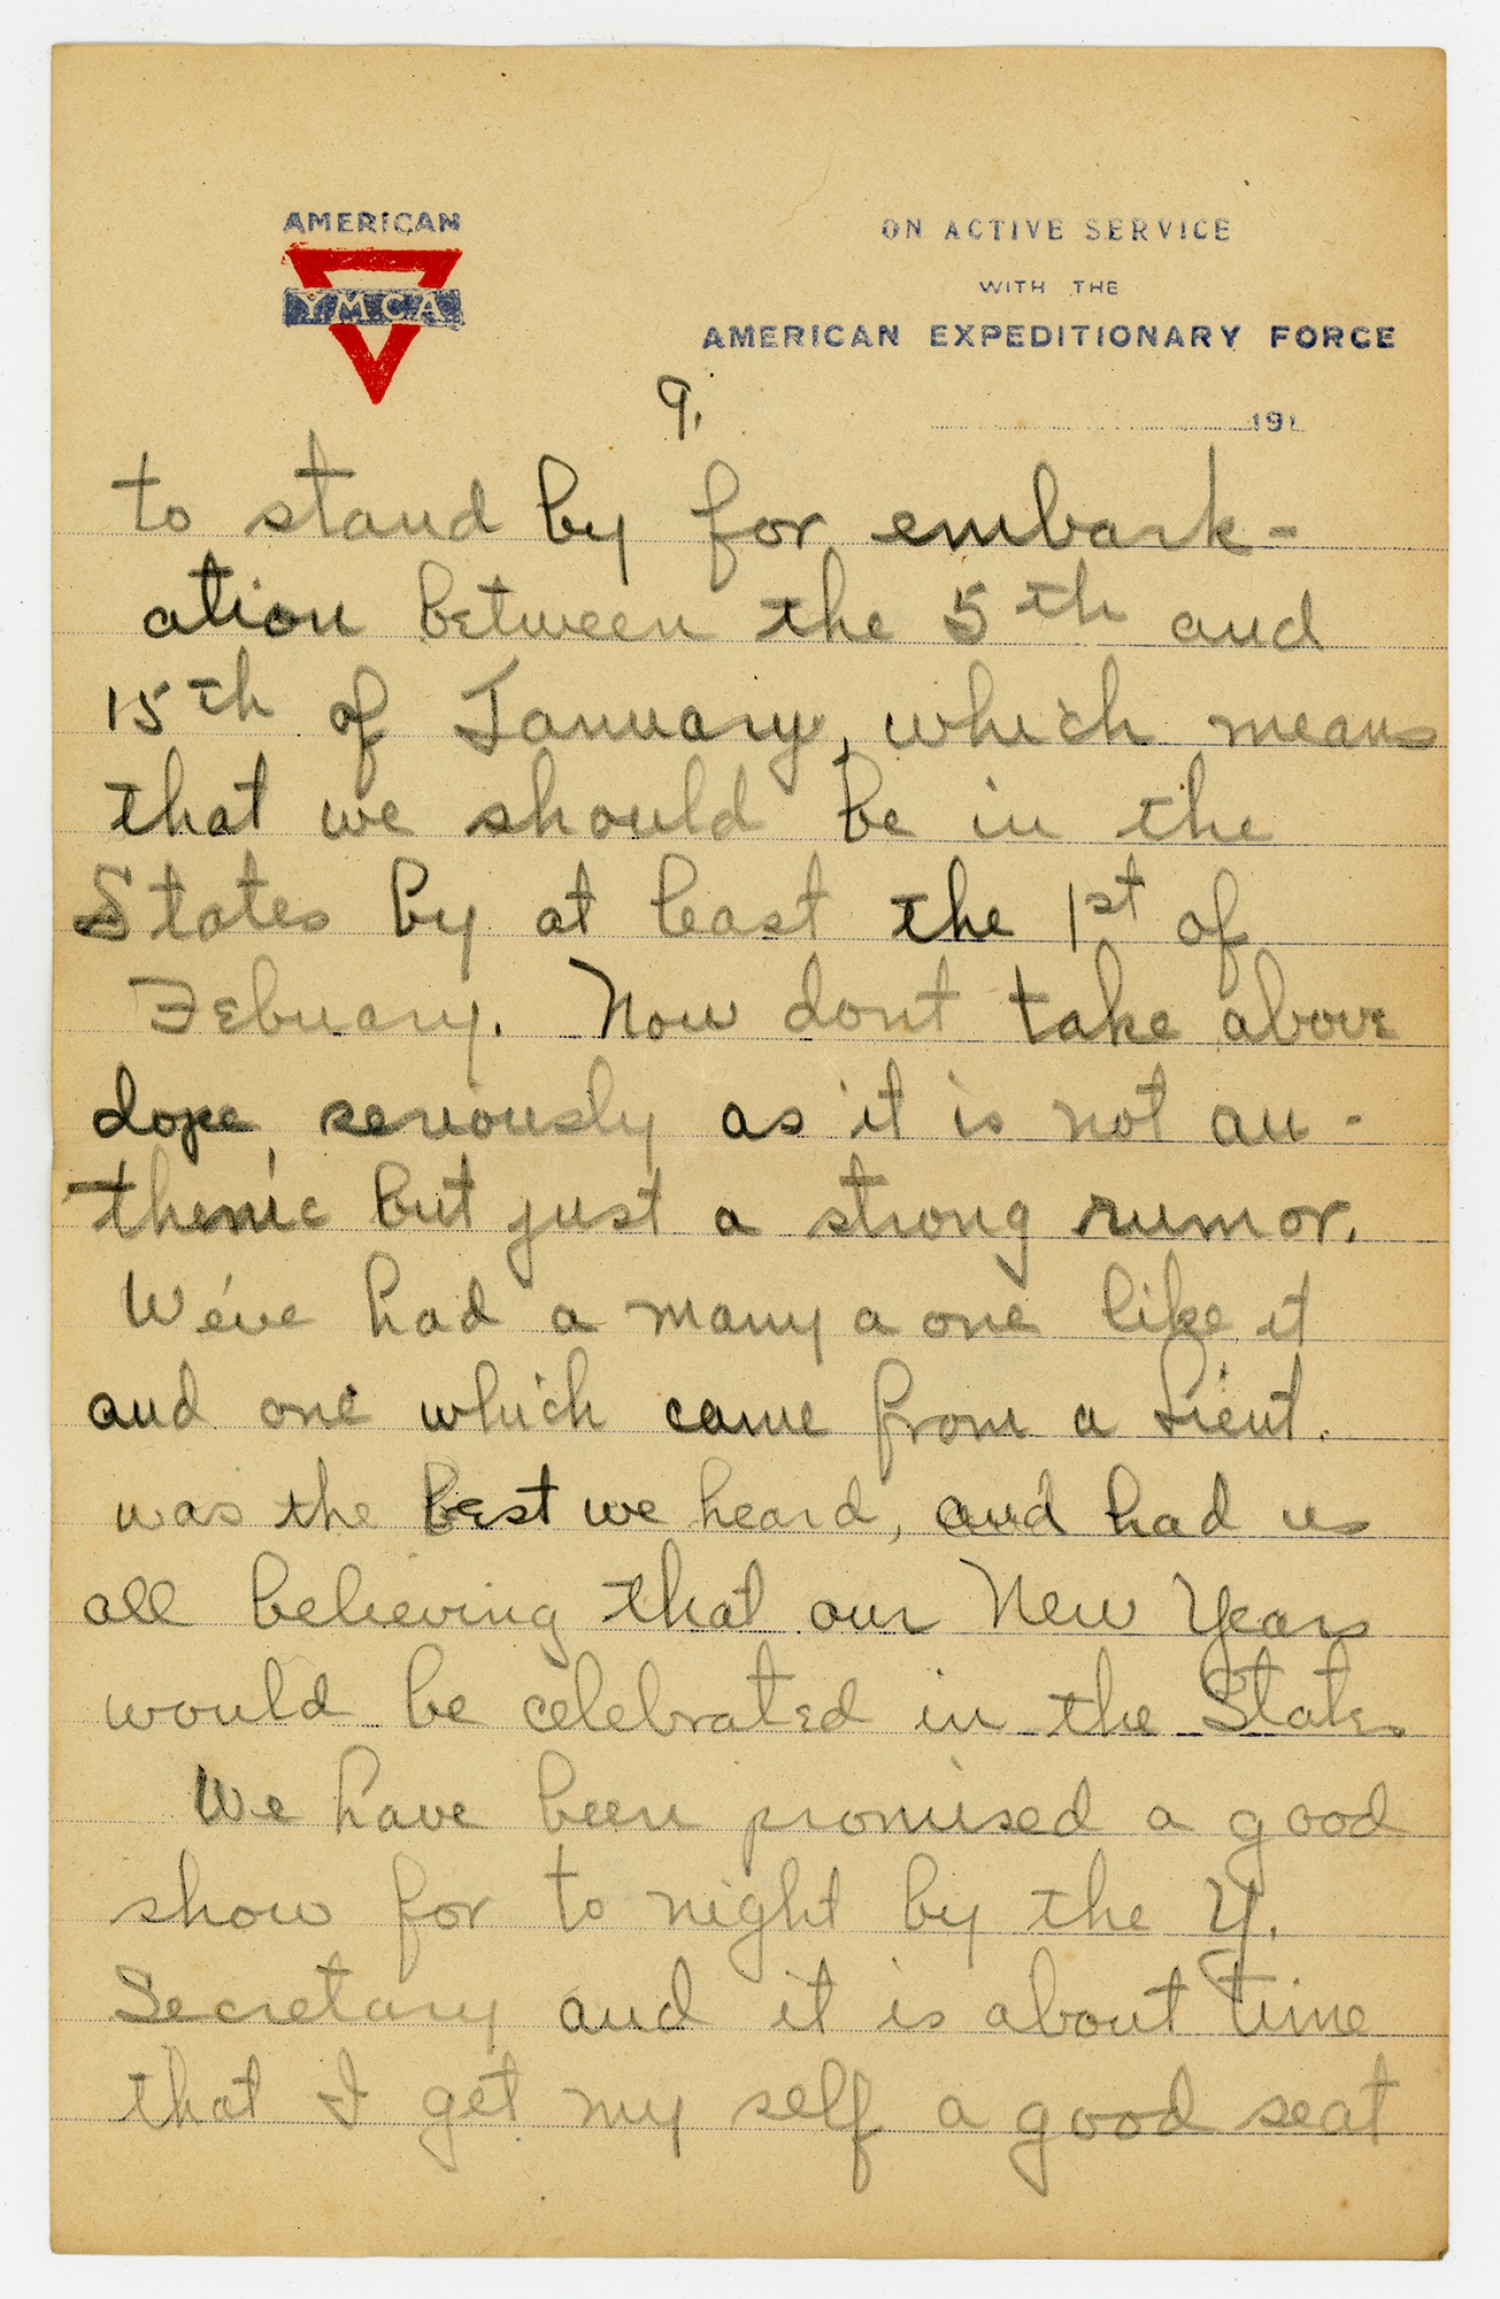 AMERICAN
YMCA
ON ACTIVE SERVICE
WITH THE
AMERICAN EXPEDITIONARY FORCE
191
9.
to stand by for embark-
ation between the 5th and
15th of January, which means
that we should be in the
States by at least the 1st of
Febuary. Now dont take above
dope, seriously as it is not au-
thenic but just a strong rumor.
We've had a many a one like it
and one which came from a Lieut.
was the best we heard, and had us
all believing that our New Years
would be celebrated in the States
We have been promised a good
show for to night by the Y.
Secretary and it is about time
that I get my self a good seat